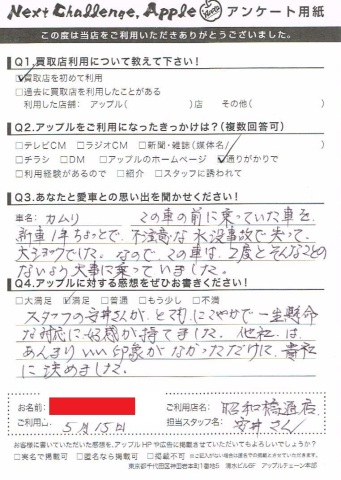 Next Challenge, Apple アンケート用紙
この度は当店をご利用いただきありがとうございました。
Q1.買取店利用について教えて下さい!
☑買取店を初めて利用
□過去に買取店を利用したことがある
利用した店舗: アップル( )店 その他( )
Q2.アップルをご利用になったきっかけは?(複数回答可)
□テレビCM □ラジオCM □新聞・雑誌(媒体名/ )
□チラシ □DM □アップルのホームページ ☑通りがかりで
□利用経験があるので □紹介 □スタッフに誘われて
Q3.あなたと愛車との思い出を聞かせください!
車名: カムリ この車の前に乗っていた車を、
新車1年ちょっとで、不注意な水没事故で失って、
大ショックでした。なので、この車は、2度とそんなことの
ないよう大事に乗っていました。
Q4.アップルに対する感想をぜひお書きください!
□大満足 ☑満足 □普通 □もう少し □不満
スタッフの安井さんが、とてもにこやかで一生懸命
な対応に好感が持てました。他社は、
あんまりいい印象がなかっただけに、貴社
に決めました。
お名前: ご利用店名: 昭和橋通店
ご利用日: 5月15日 担当スタッフ名: 安井さん
お客様に書いていただいた感想を、アップルHPや広告に掲載させていただいてもよろしいでしょうか?
□実名で掲載可 □匿名なら掲載可 □掲載不可 ※ご記入がない場合は匿名での掲載とさせていただきます。
東京都千代田区神田岩本町1番地5 清水ビル6F アップルチェーン本部